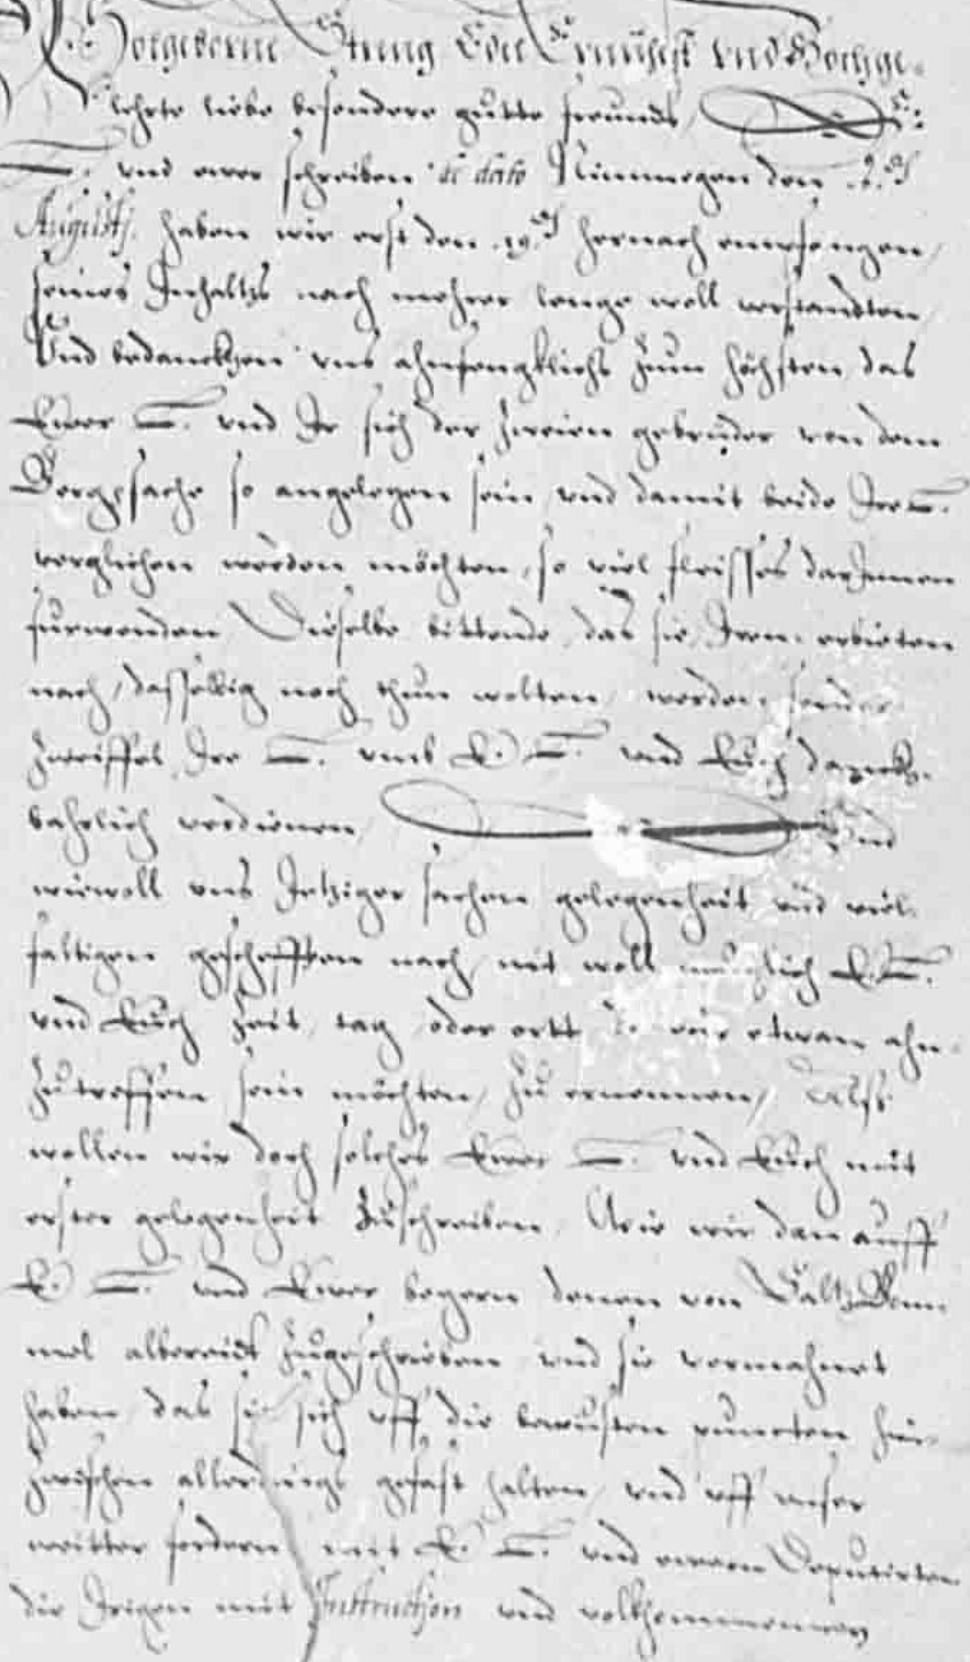 Wolgeborne Streng Edel Ernuhest vnd Hochge-
lehrte liebe besondere gutte freunds, E:
L. vnd ewer schreiben de dato Nimmegen den 2.ten
Augustj. haben wir erst den 19.ten hernach empfangen,
seines Inhaltzs nach mehrer lenge woll verstandten
Vnd bedanckhen vns ahnfengklichs zum höchsten das
Ewer L. vnd Ir sich der zweien gebruder von dem
Berge sache so angelegen sein vnd damit beide Irre L.
verglichen werden möchten, so viel fleisses darinnen
furwenden Dieselbe bittende, das sie Irem erbieten
nach, dasselbig noch thun wolten, werden sonder
zweiffel Ire L. vmb E. L. vnd Euch danckh-
bahrlich verdienen, Und
wiewoll vns Jetziger sachen gelegenheit vnd viel-
faltigen geschefften nach, nit woll muglich E. L.
vnd Euch Zeit, tag oder ortt do wir etwan ahn-
zutreffen sein möchten, zu ernennen,
wollen wir doch solches Ewer L. vnd Euch mit
erster gelegenheit zuschreiben. Wie wir dan auff
E. L. vnd Ewer begern denen von Saltz Bom-
mel albereidt zugeschrieben vnd sie vermahnet
haben das sie sich vff die bewusten puncten hin-
zwischen allerdings gefast halten, vnd vff vnser
weitter fordern mit E. L. vnd ewern Deputirten
die Irigen mit Instruction vnd volkhommenen